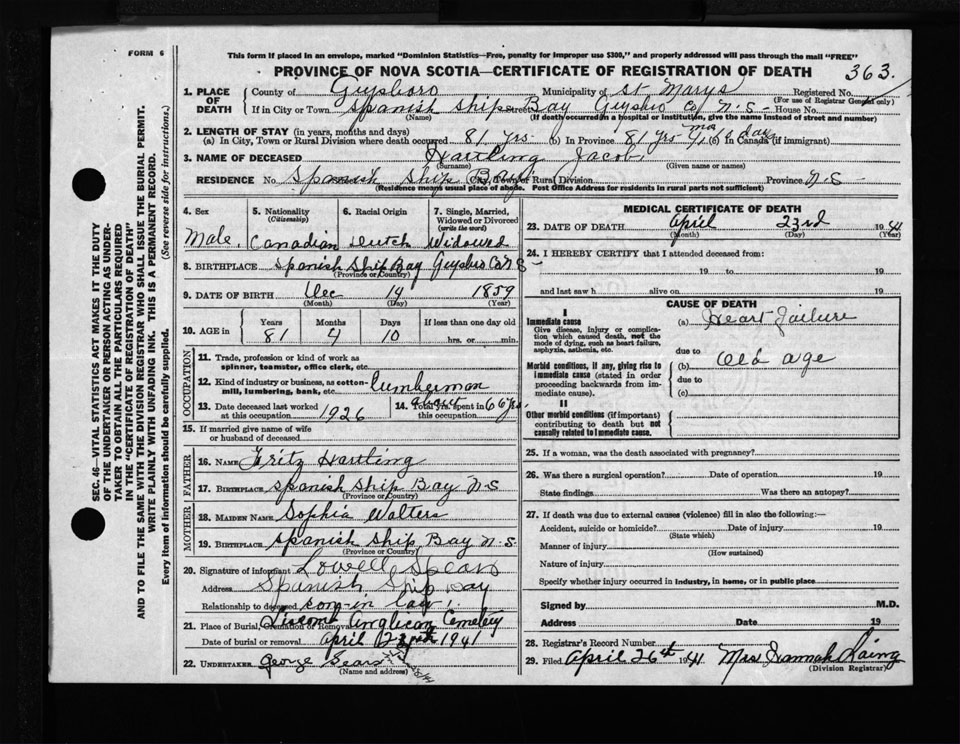 FORM 6
This form if placed in an envelope, marked "Dominion Statistics—Free, penalty for improper use $300," and properly addressed will pass through the mail "FREE"
PROVINCE OF NOVA SCOTIA—CERTIFICATE OF REGISTRATION OF DEATH 363.
1. PLACE OF DEATH
County of Guysboro Municipality of St Marys Registered No.
(For use of Registrar General only)
If in City or Town Spanish Ship Bay Street Guysbro Co N.S- House No.
(Name) (If death occurred in a hospital or institution, give the name instead of street and number)
2. LENGTH OF STAY (in years, months and days)
(a) In City, Town or Rural Division where death occurred 81 yrs. (b) In Province 81 yrs mo days (c) In Canada (if immigrant)
3. NAME OF DECEASED Hartling Jacob
(Surname) (Given name or names)
RESIDENCE No. Spanish Ship Bay City, Town or Rural Division Province N.S-
(Residence means usual place of abode. Post Office Address for residents in rural parts not sufficient)
4. Sex
Male.
5. Nationality
(Citizenship)
Canadian
6. Racial Origin
Dutch
7. Single, Married, Widowed or Divorced
(write the word)
Widowed
8. BIRTHPLACE Spanish Ship Bay Guysbro Co N S-
(Province or Country)
9. DATE OF BIRTH Dec 14 1859
(Month) (Day) (Year)
10. AGE in Years Months Days If less than one day old
81 4 10 hrs. or min.
OCCUPATION
11. Trade, profession or kind of work as spinner, teamster, office clerk, etc.
12. Kind of industry or business, as cotton-mill, lumbering, bank, etc. Lumberman
13. Date deceased last worked at this occupation 1926
14. Total yrs. spent in this occupation about 66 yrs.
15. If married give name of wife or husband of deceased
FATHER
16. NAME Fritz Hartling
17. BIRTHPLACE Spanish Ship Bay N.S
(Province or Country)
MOTHER
18. MAIDEN NAME Sophia Walters
19. BIRTHPLACE Spanish Ship Bay N.S.
(Province or Country)
20. Signature of informant Lowell
Address Spanish Ship Bay
Relationship to deceased son-in law
21. Place of Burial, Cremation or Removal Liscomb Anglican Cemetery
Date of burial or removal April 1941
22. UNDERTAKER George Sears
(Name and address)
MEDICAL CERTIFICATE OF DEATH
23. DATE OF DEATH April 23rd 1941
(Month) (Day) (Year)
24. I HEREBY CERTIFY that I attended deceased from:
19 to 19
and last saw h alive on 19
CAUSE OF DEATH
I
Immediate cause
Give disease, injury or complication which caused death, not the mode of dying, such as heart failure, asphyxia, asthenia, etc.
(a) Heart Failure
due to
Morbid conditions, if any, giving rise to immediate cause (stated in order proceeding backwards from immediate cause).
(b) Old age
due to
(c)
II
Other morbid conditions (if important) contributing to death but not causally related to immediate cause.
25. If a woman, was the death associated with pregnancy?
26. Was there a surgical operation? Date of operation 19
State findings Was there an autopsy?
27. If death was due to external causes (violence) fill in also the following:—
Accident, suicide or homicide? Date of injury 19
(State which)
Manner of injury
(How sustained)
Nature of injury
Specify whether injury occurred in industry, in home, or in public place
Signed by M.D.
Address Date 19
28. Registrar's Record Number
29. Filed April 26th 1941 Mrs Hannah Laing
(Division Registrar)
SEC. 46—VITAL STATISTICS ACT MAKES IT THE DUTY
OF THE UNDERTAKER OR PERSON ACTING AS UNDER-
TAKER TO OBTAIN ALL THE PARTICULARS REQUIRED
IN THE "CERTIFICATE OF REGISTRATION OF DEATH"
AND TO FILE THE SAME WITH THE DIVISION REGISTRAR WHO SHALL ISSUE THE BURIAL PERMIT.
WRITE PLAINLY WITH UNFADING INK. THIS IS A PERMANENT RECORD.
Every item of information should be carefully supplied. (See reverse side for instructions.)